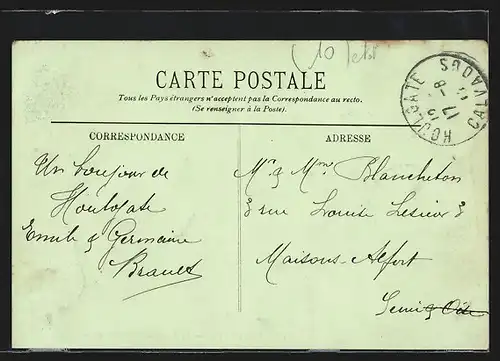 (10) etst
CARTE POSTALE
Tous les Pays étrangers n'acceptent pas la Correspondance au recto.
(Se renseigner à la Poste).
HOULGATE
CALVADOS
CORRESPONDANCE
ADRESSE
Un bonjour de
Houlgate
Emile & Germaine
Brault
Mr & Mme Blancheton
3 rue Louise 3
Maisons-Alfort
Seine